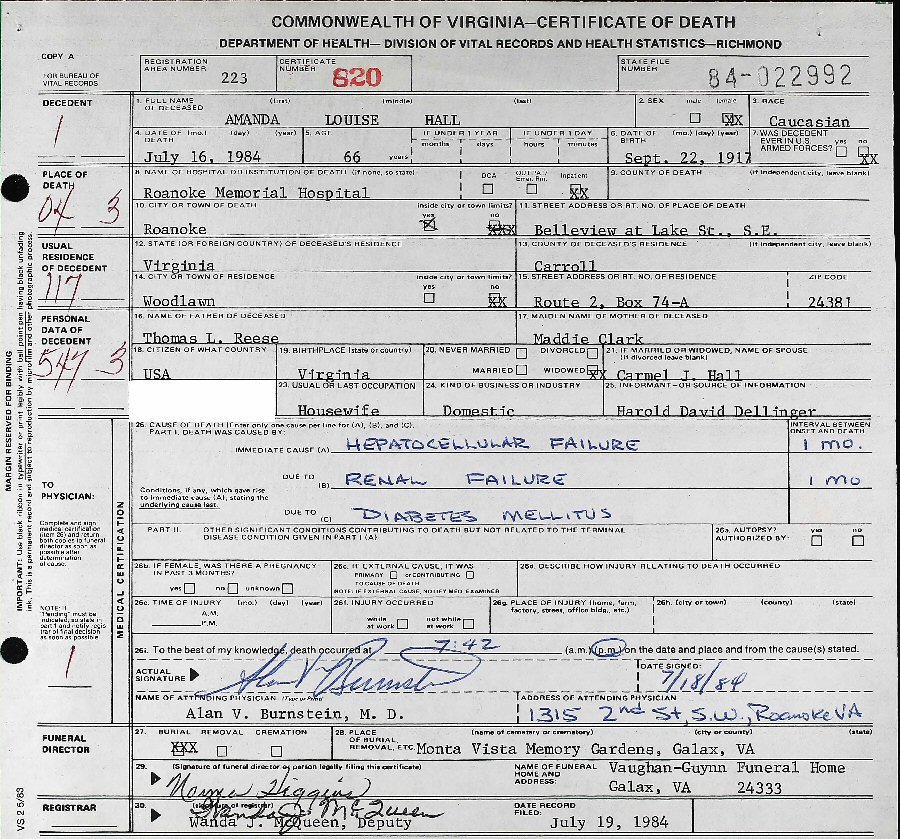 COMMONWEALTH OF VIRGINIA—CERTIFICATE OF DEATH
DEPARTMENT OF HEALTH— DIVISION OF VITAL RECORDS AND HEALTH STATISTICS—RICHMOND
COPY A
FOR BUREAU OF VITAL RECORDS
REGISTRATION AREA NUMBER 223
CERTIFICATE NUMBER 820
STATE FILE NUMBER 84-022992
DECEDENT
1
1. FULL NAME OF DECEASED (first) (middle) (last)
AMANDA LOUISE HALL
2. SEX male female XX
3. RACE
Caucasian
4. DATE OF DEATH (mo.) (day) (year)
July 16, 1984
5. AGE
66 years
IF UNDER 1 YEAR months days
IF UNDER 1 DAY hours minutes
6. DATE OF BIRTH (mo.) (day) (year)
Sept. 22, 1917
7. WAS DECEDENT EVER IN U.S. ARMED FORCES? yes no XX
PLACE OF DEATH
04 3
8. NAME OF HOSPITAL OR INSTITUTION OF DEATH (if none, so state)
Roanoke Memorial Hospital
DOA
OUTPAT/ Emer. Rm.
Inpatient XX
9. COUNTY OF DEATH (if independent city, leave blank)
10. CITY OR TOWN OF DEATH
Roanoke
inside city or town limits? yes no XXX
11. STREET ADDRESS OR RT. NO. OF PLACE OF DEATH
Belleview at Lake St., S.E.
USUAL RESIDENCE OF DECEDENT
117
12. STATE (OR FOREIGN COUNTRY) OF DECEASED'S RESIDENCE
Virginia
13. COUNTY OF DECEASED'S RESIDENCE (if independent city, leave blank)
Carroll
14. CITY OR TOWN OF RESIDENCE
Woodlawn
inside city or town limits? yes no XX
15. STREET ADDRESS OR RT. NO. OF RESIDENCE
Route 2, Box 74-A
ZIP CODE
24381
PERSONAL DATA OF DECEDENT
547 3
16. NAME OF FATHER OF DECEASED
Thomas L. Reese
17. MAIDEN NAME OF MOTHER OF DECEASED
Maddie Clark
18. CITIZEN OF WHAT COUNTRY
USA
19. BIRTHPLACE (state or country)
Virginia
20. NEVER MARRIED DIVORCED
MARRIED WIDOWED XX
21. IF MARRIED OR WIDOWED, NAME OF SPOUSE (if divorced leave blank)
Carmel J. Hall
23. USUAL OR LAST OCCUPATION
Housewife
24. KIND OF BUSINESS OR INDUSTRY
Domestic
25. INFORMANT—OR SOURCE OF INFORMATION
Harold David Dellinger
MARGIN RESERVED FOR BINDING
IMPORTANT: Use black ribbon in typewriter or print legibly with ball point pen having black unfading
ink. This is a permanent record and subject to reproduction by microfilm and other photographic process.
TO PHYSICIAN:
Complete and sign medical certification (item 26) and return both copies to funeral director as soon as possible after determination of cause.
NOTE: If "Pending" must be indicated, so state in part I and notify registrar of final decision as soon as possible
1
MEDICAL CERTIFICATION
26. CAUSE OF DEATH (Enter only one cause per line for (A), (B), and (C).
PART I. DEATH WAS CAUSED BY:
INTERVAL BETWEEN ONSET AND DEATH
IMMEDIATE CAUSE (A) HEPATOCELLULAR FAILURE 1 mo.
DUE TO (B) RENAL FAILURE 1 mo
Conditions, if any, which gave rise to immediate cause (A), stating the underlying cause last.
DUE TO (C) DIABETES MELLITUS
PART II. OTHER SIGNIFICANT CONDITIONS CONTRIBUTING TO DEATH BUT NOT RELATED TO THE TERMINAL DISEASE CONDITION GIVEN IN PART I (A)
26a. AUTOPSY? AUTHORIZED BY: yes no
26b. IF FEMALE, WAS THERE A PREGNANCY IN PAST 3 MONTHS?
yes no unknown
26c. IF EXTERNAL CAUSE, IT WAS
PRIMARY or CONTRIBUTING
TO CAUSE OF DEATH
NOTE: IF EXTERNAL CAUSE, NOTIFY MED EXAMINER
26d. DESCRIBE HOW INJURY RELATING TO DEATH OCCURRED
26e. TIME OF INJURY (mo.) (day) (year)
A.M.
P.M.
26f. INJURY OCCURRED
while at work not while at work
26g. PLACE OF INJURY (home, farm, factory, street, office bldg., etc.)
26h. (city or town) (county) (state)
26i. To the best of my knowledge, death occurred at 7:42 (a.m.) (p.m.) on the date and place and from the cause(s) stated.
ACTUAL SIGNATURE Alan V Burnstein
DATE SIGNED: 7/18/84
NAME OF ATTENDING PHYSICIAN (Type or Print)
Alan V. Burnstein, M. D.
ADDRESS OF ATTENDING PHYSICIAN
1315 2nd St, S.W., Roanoke VA
FUNERAL DIRECTOR
27. BURIAL REMOVAL CREMATION
XXX
28. PLACE OF BURIAL, REMOVAL, ETC. (name of cemetery or crematory) (city or county) (state)
Monta Vista Memory Gardens, Galax, VA
29. (Signature of funeral director or person legally filing this certificate)
Norma Higgins
NAME OF FUNERAL HOME AND ADDRESS:
Vaughan-Guynn Funeral Home
Galax, VA 24333
REGISTRAR
30. (signature of registrar)
Wanda J. McQueen
Wanda J. McQueen, Deputy
DATE RECORD FILED:
July 19, 1984
VS 2 5/83